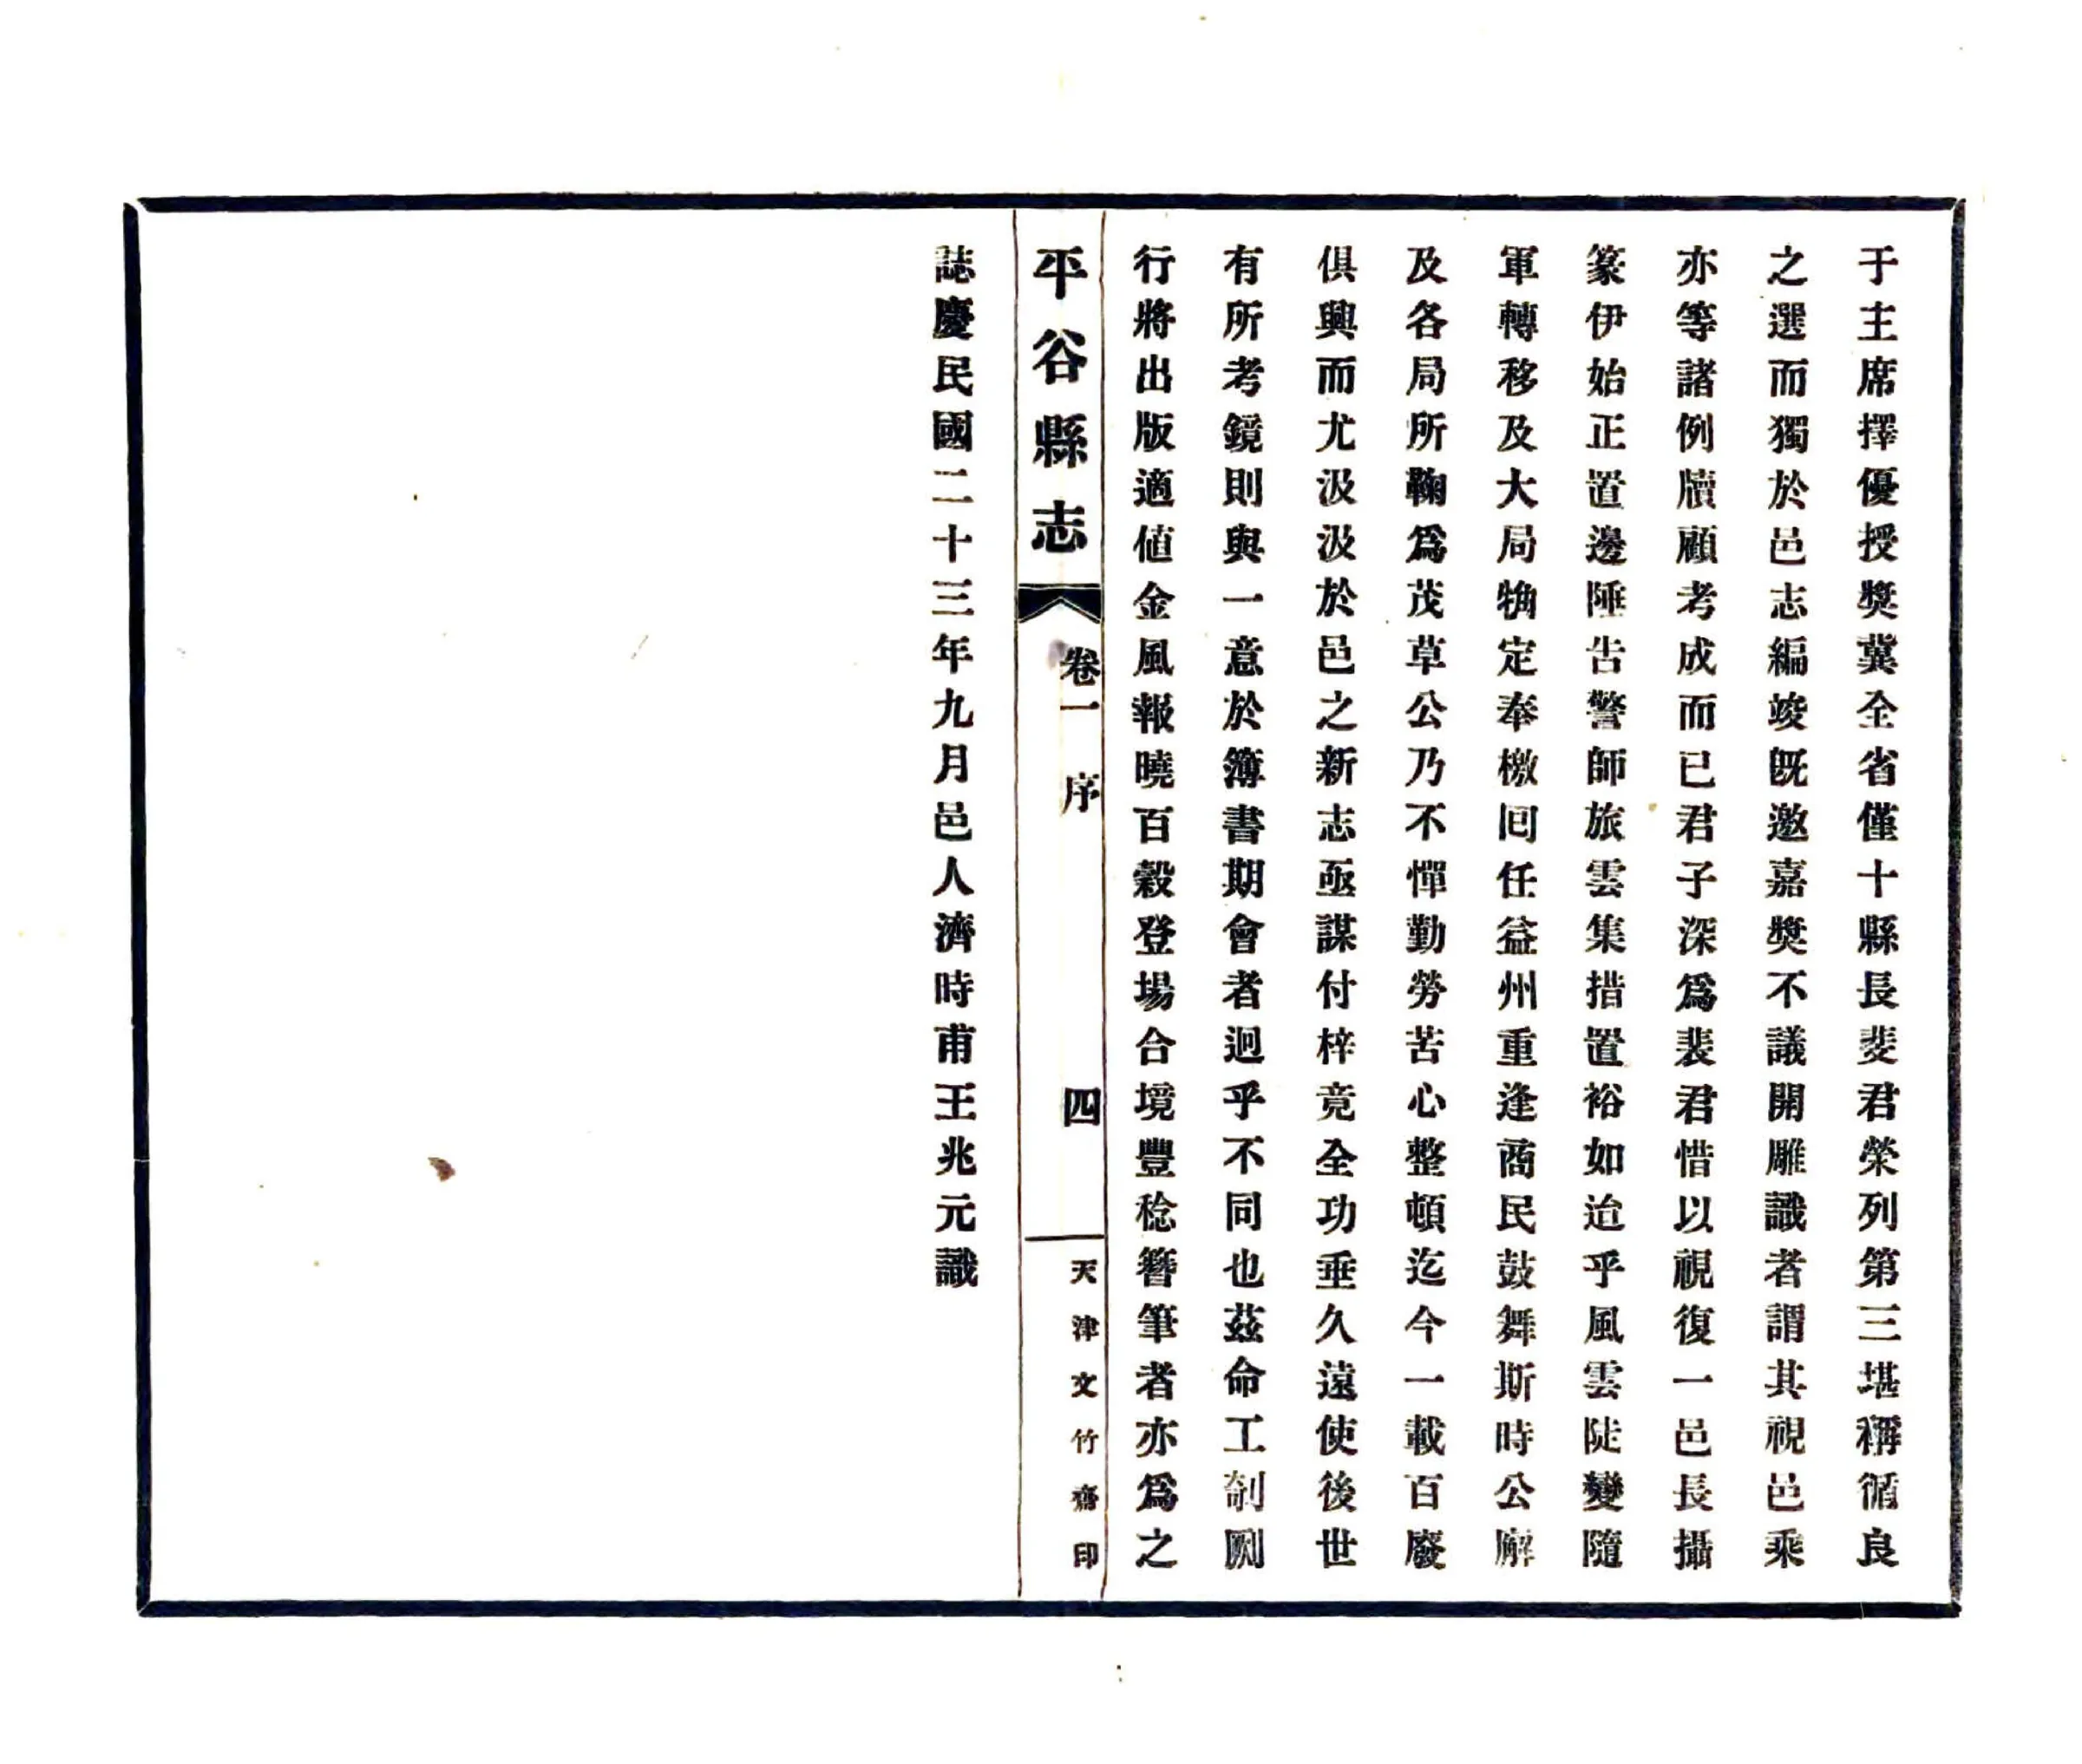 于主席擇優授獎冀全省僅十縣長斐君榮列第三堪稱循良
之選而獨於邑志編竣旣邀嘉獎不議開雕識者謂其視邑乘
亦等諸例牘顧考成而已君子深爲裴君惜以視復一邑長攝
篆伊始正置邊陲告警師旅雲集措置裕如迨乎風雲陡變隨
軍轉移及大局牰定奉檄囘任益州重逢商民鼓舞斯時公廨
及各局所鞠爲茂草公乃不憚勤勞苦心整頓迄今一載百廢
俱興而尤汲汲於邑之新志亟謀付梓竟全功垂久遠使後世
有所考鏡則與一意於簿書期會者迥乎不同也茲命工剞劂
行將出版適値金風報曉百穀登場合境豐稔簪筆者亦爲之
平谷縣志
卷一 序
四
天津文竹齋印
誌慶民國二十三年九月邑人濟時甫王兆元識